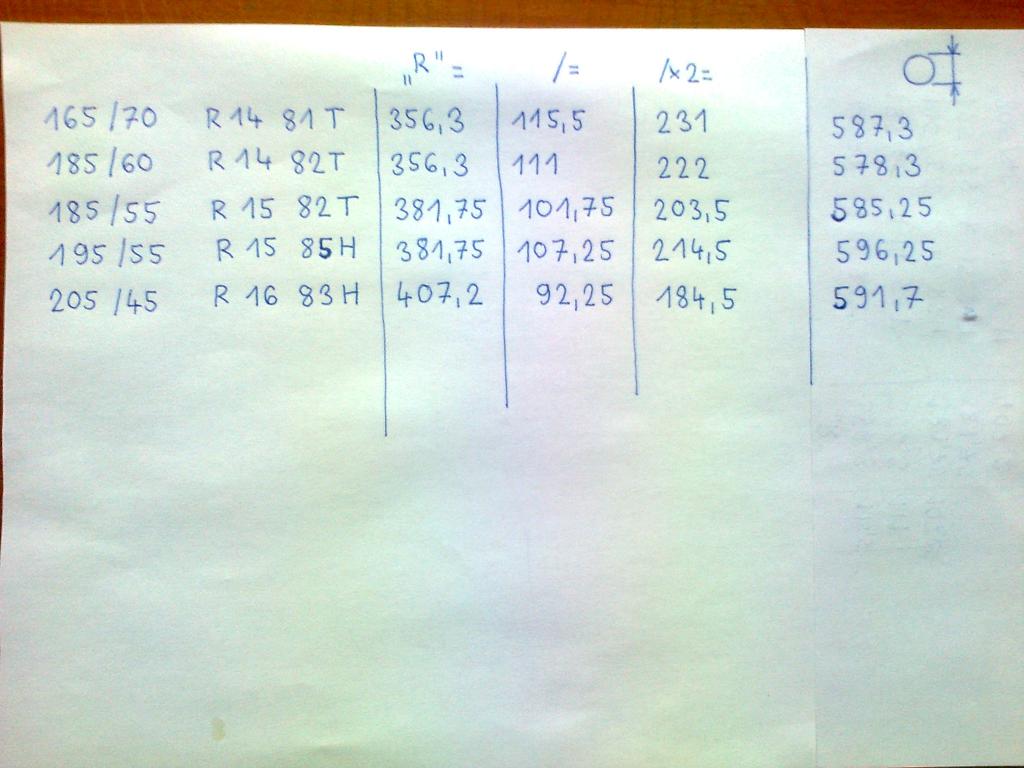 „R“= /= /x2=
165/70 R 14 81 T 356,3 115,5 231 587,3
185/60 R 14 82T 356,3 111 222 578,3
185/55 R 15 82 T 381,75 101,75 203,5 585,25
195/55 R 15 85H 381,75 107,25 214,5 596,25
205/45 R 16 83 H 407,2 92,25 184,5 591,7